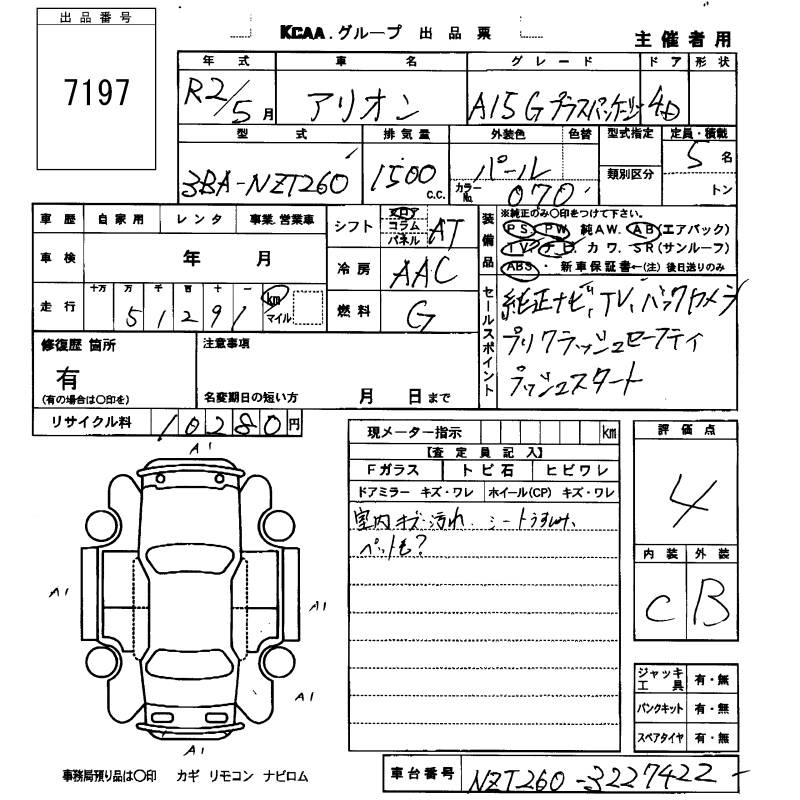 出品番号
7197
KCAA.グループ 出品票
主催者用
年式 車名 グレード ドア 形状
R2/5月 アリオン A15 Gプラスパッケージ 4D
型式 排気量 外装色 色替 型式指定 定員・積載
3BA-NZT260 1500 C.C. パール 5名
カラーNo. 070 類別区分 トン
車歴 自家用 レンタ 事業.営業車
シフト フロア コラム パネル AT
装備品
※純正のみ〇印をつけて下さい。
PS. PW. 純AW. AB(エアバック)
TV. ナビ. カワ. SR(サンルーフ)
ABS・ 新車保証書←(注)後日送りのみ
車検 年 月
冷房 AAC
走行 十万 万 千 百 十 一 km マイル
51291
燃料 G
セールスポイント
純正ナビ,TV,バックカメラ
プリクラッシュセーフティ
プッシュスタート
修復歴 箇所
有
(有の場合は〇印を)
注意事項
名変期日の短い方 月 日まで
リサイクル料 10280円
現メーター指示 km
【査定員記入】
Fガラス トビ石 ヒビワレ
ドアミラー キズ・ワレ ホイール(CP) キズ・ワレ
室内キズ・汚れ. シートうすれみ.
ペットも?
評価点
4
内装 外装
C B
A1
A1
A1
A1
A1
ジャッキ工具 有・無
パンクキット 有・無
スペアタイヤ 有・無
事務局預り品は〇印 カギ リモコン ナビロム
車台番号 NZT260-3227422